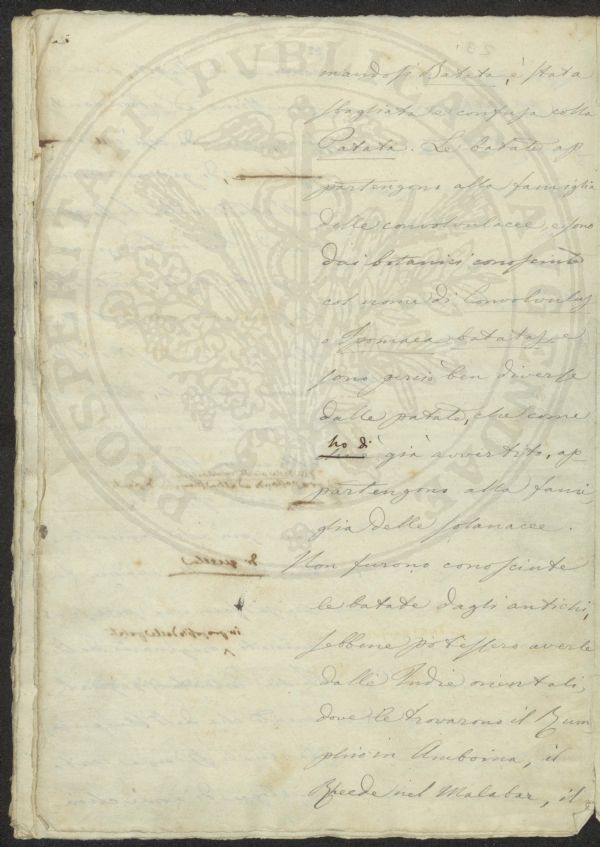 mandosi Batata, è stata
sbagliata e confusa colla
Patata. Le batate ap-
partengono alla famiglia
delle convolvulacee, e sono
dai botanici conosciute
col nome di Convolvulus
o Ipomaea batatas, e
sono perciò ben diverse
dalle patate, che come
ho di
già avvertito, ap-
partengono alla fami-
glia delle solanacee.
Non furono conosciute
di quelle
le batate dagli antichi,
sebbene potessero averle
dalle Indie orientali,
dove le trovarono il Rum-
phio in Amboina, il
Rheede nel Malabar, il
PROSPERITATI PUBLICAE AUGENDAE